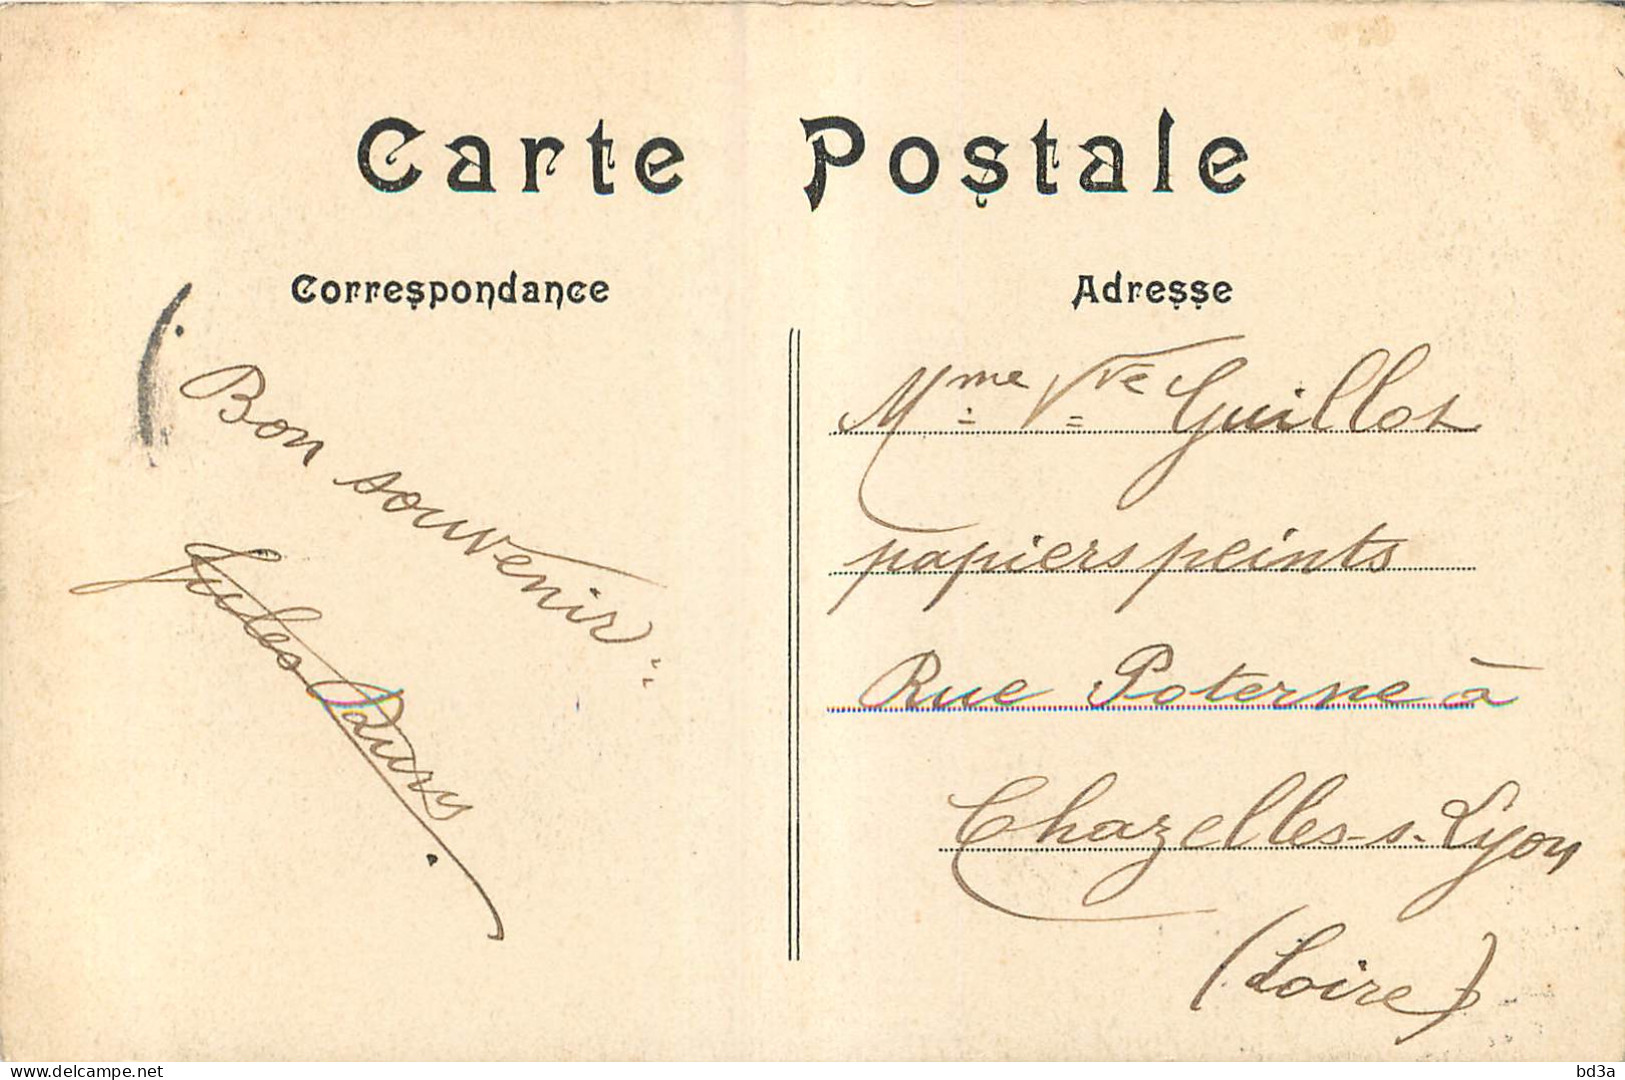 Carte Postale
Correspondance
Bon souvenir
Jules
Adresse
Mme Vve Guillot
papiers peints
Rue Poterne à
Chazelles-s-Lyon
(Loire)
delcampe.net
bd3a